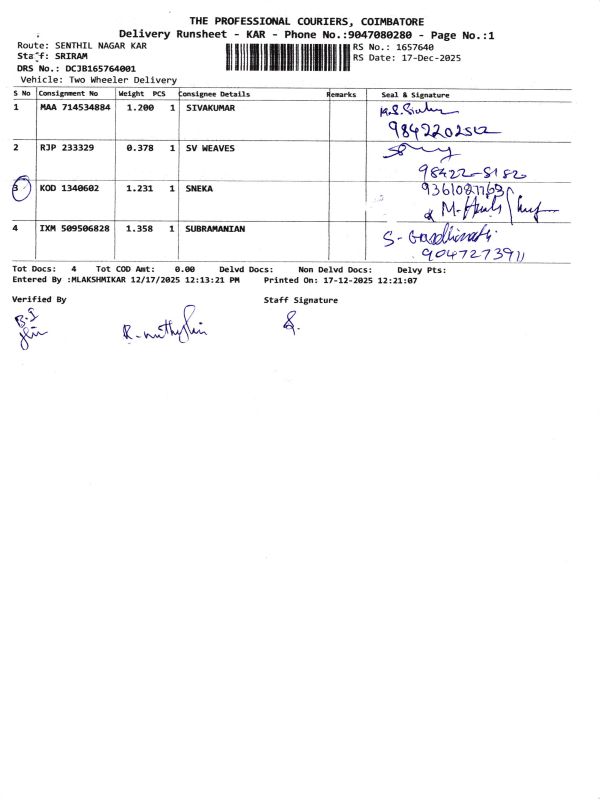 THE PROFESSIONAL COURIERS, COIMBATORE
Delivery Runsheet - KAR - Phone No.:9047080280 - Page No.:1
Route: SENTHIL NAGAR KAR
RS No.: 1657640
Staff: SRIRAM
RS Date: 17-Dec-2025
DRS No.: DCJB165764001
Vehicle: Two Wheeler Delivery
S No Consignment No Weight PCS Consignee Details Remarks Seal & Signature
1 MAA 714534884 1.200 1 SIVAKUMAR
2 RJP 233329 0.378 1 SV WEAVES
98422-5182
3 KOD 1340602 1.231 1 SNEKA
4 IXM 509506828 1.358 1 SUBRAMANIAN
9047273911
Tot Docs: 4 Tot COD Amt: 0.00 Delvd Docs: Non Delvd Docs: Delvy Pts:
Entered By :MLAKSHMIKAR 12/17/2025 12:13:21 PM Printed On: 17-12-2025 12:21:07
Verified By Staff Signature